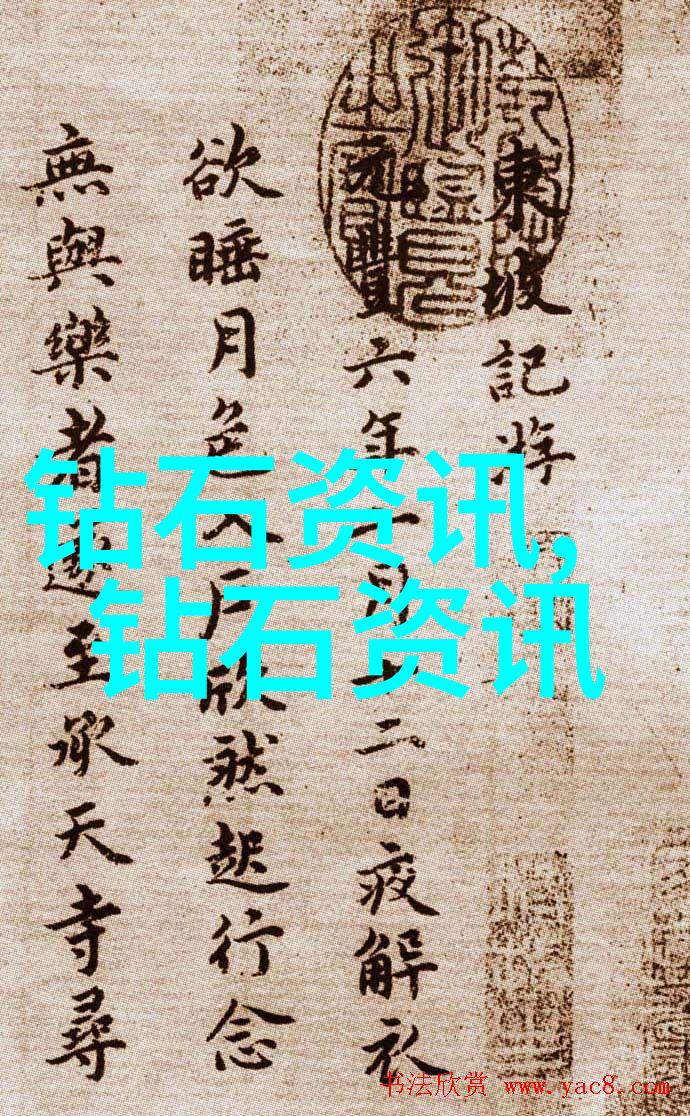 東坡記游
元豐六年十月十二日夜解衣
欲睡月色入戶欣然起行念
無與樂者遂至承天寺尋
钻石资讯,
钻石资讯
书法欣赏 www.yac8.com